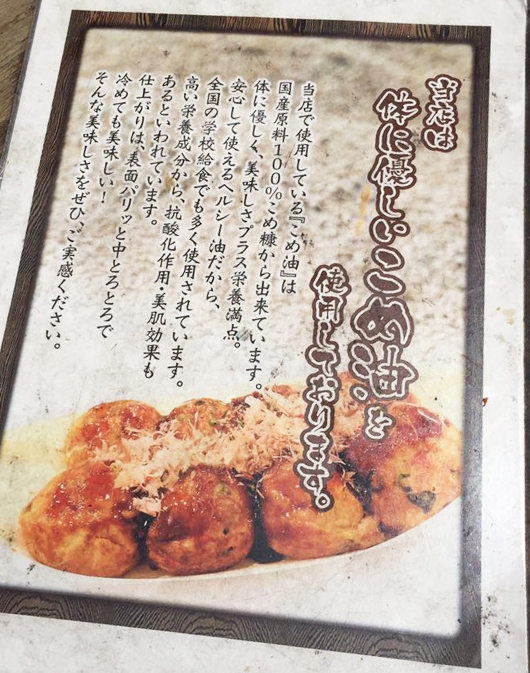 当店は
体に優しいこめ油を
使用しております。
当店で使用している『こめ油』は
国産原料100%こめ糠から出来ています。
体に優しく、美味しさプラス栄養満点。
安心して使えるヘルシー油だから、
全国の学校給食でも多く使用されています。
高い栄養成分から、抗酸化作用・美肌効果も
あるといわれています。
仕上がりは、表面パリッと中とろとろで
冷めても美味しい！
そんな美味しさをぜひ、ご実感ください。